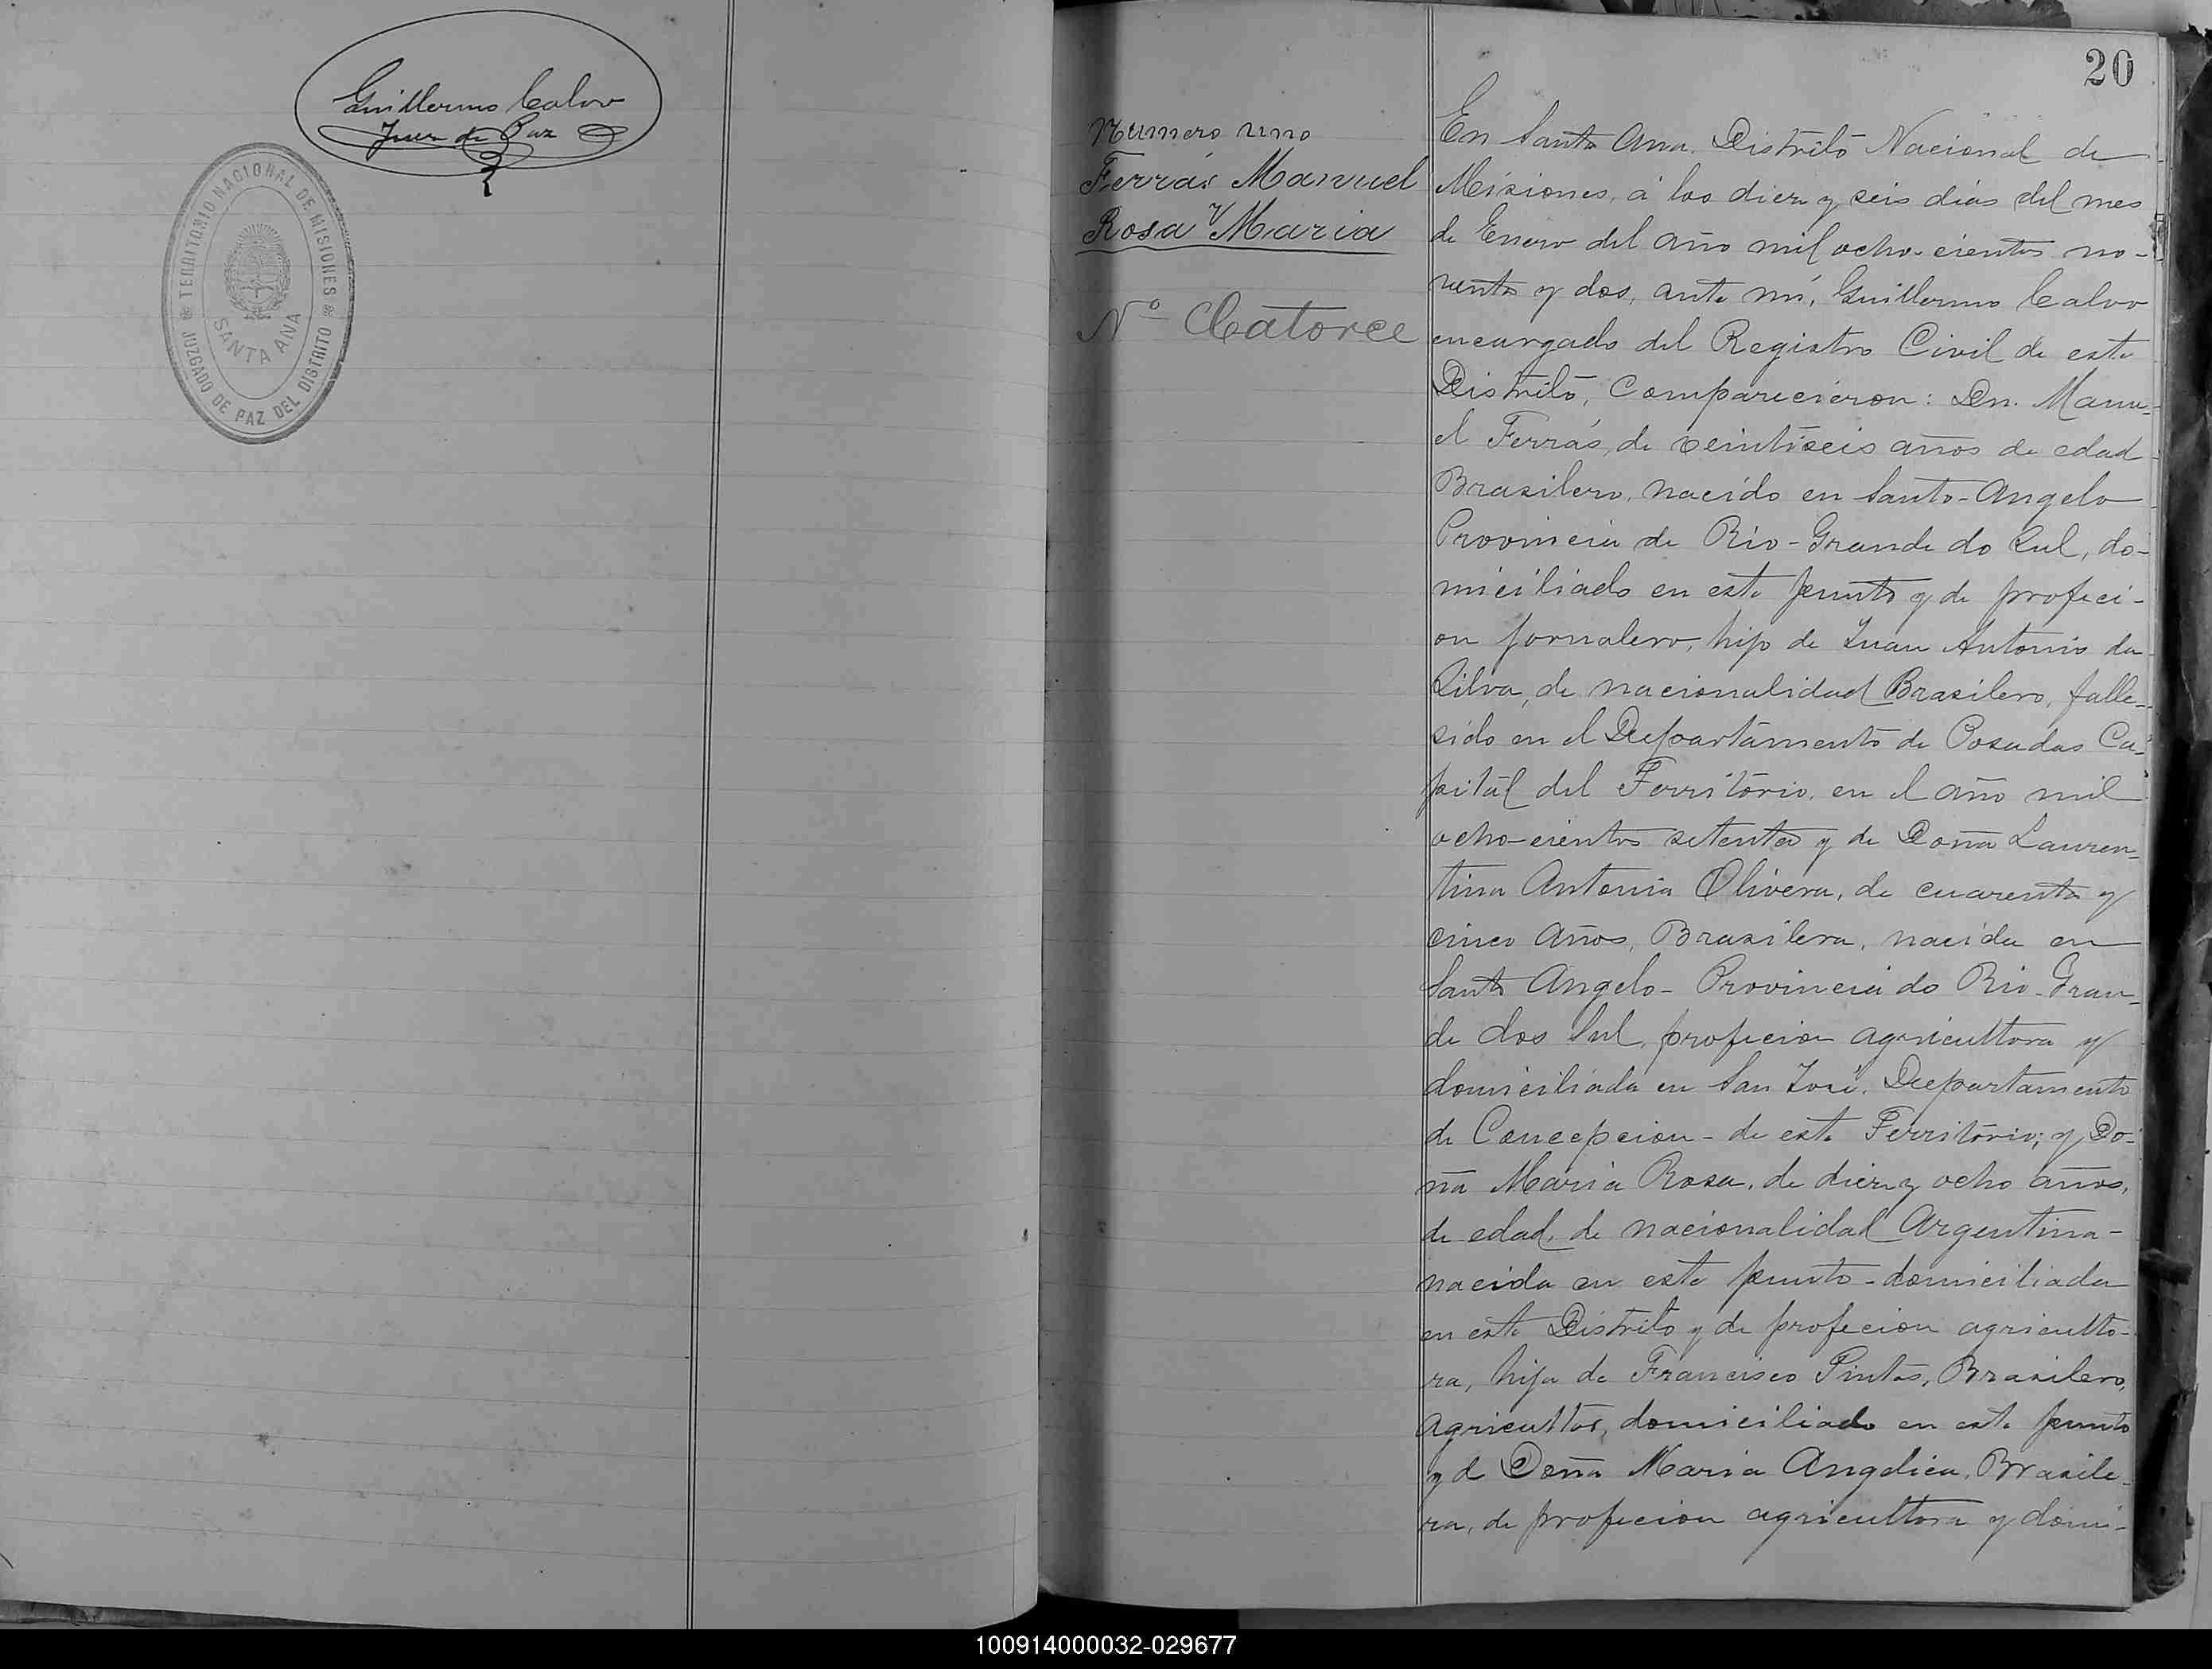 Guillermo Calvo
Juez de Paz
TERRITORIO NACIONAL DE MISIONES
JUZGADO DE PAZ DEL DISTRITO
SANTA ANA
20
Numero uno
Ferrás Manuel
y
Rosa Maria
Nº Catorce
En Santa Ana, Distrito Nacional de
Misiones, á los diez y seis dias del mes
de Enero del año mil ocho-cientos no-
venta y dos, ante mí, Guillermo Calvo
encargado del Registro Civil de este
Distrito, Comparecieron: Dn. Manu-
el Ferrás, de veintiseis años de edad
Brasilero, nacido en Santo-Angelo
Provincia de Rio-Grande do Sul, do-
miciliado en este punto y de profeci-
on jornalero, hijo de Juan Antonio da
Silva, de nacionalidad Brasilero, falle-
sido en el Departamento de Posadas Ca-
pital del Territorio, en el año mil
ocho-cientos setenta y de Doña Lauren-
tina Antonia Olivera, de cuarenta y
cinco años, Brasilera, nacida en
Santo Angelo - Provincia do Rio-Gran-
de dos Sul, profecion agricultora y
domiciliada en San José, Departamento
de Concepcion - de este Territorio; y Do-
ña Maria Rosa, de diez y ocho años,
de edad, de nacionalidad Argentina -
nacida en este punto - domiciliada
en este Distrito y de profecion agriculto-
ra, hija de Francisco Pintos, Brasilero,
agricultor, domiciliado en este punto
y d Doña Maria Angelica, Brasile-
ra, de profecion agricultora y domi-
100914000032-029677